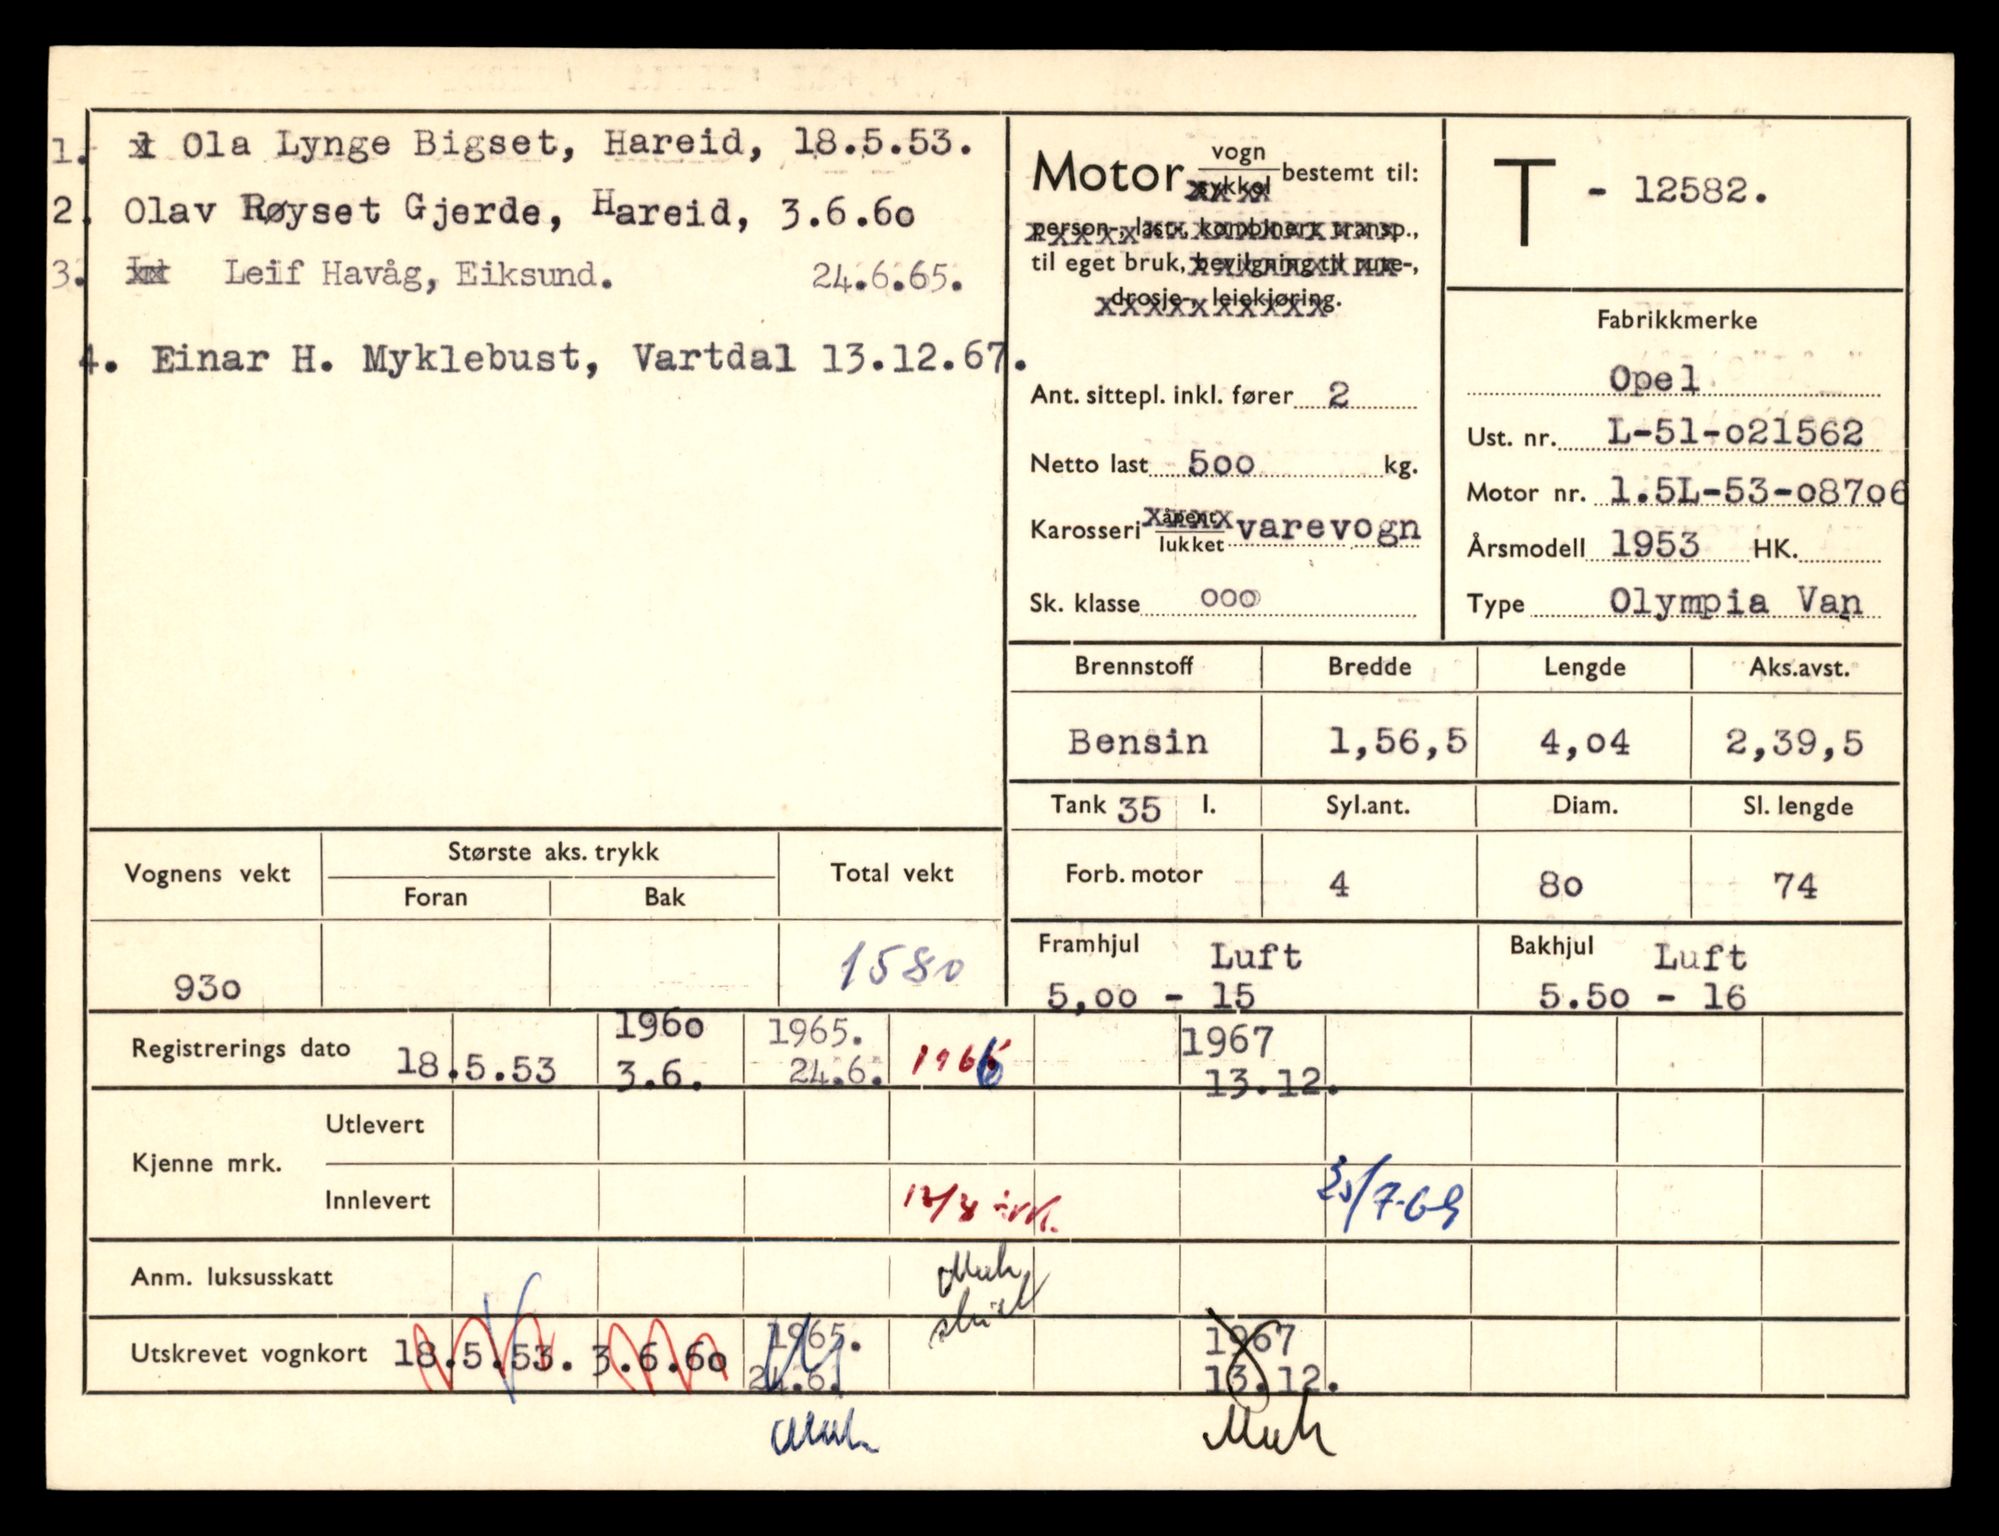 1. Ola Lynge Bigset, Hareid, 18.5.53.
2. Olav Røyset Gjerde, Hareid, 3.6.60
3. Leif Havåg, Eiksund. 24.6.65.
4. Einar H. Myklebust, Vartdal 13.12.67.
Motor vogn sykkel bestemt til:
person-, last-, kombinert transp.,
til eget bruk, bevilgning til rute-,
drosje-, leiekjøring.
Ant. sittepl. inkl. fører 2
Netto last 500 kg.
Karosseri åpent lukket varevogn
Sk. klasse 000
T - 12582.
Fabrikkmerke
Opel
Ust. nr. L-51-021562
Motor nr. 1.5L-53-08706
Årsmodell 1953 HK.
Type Olympia Van
Brennstoff Bredde Lengde Aks.avst.
Bensin 1,56,5 4,04 2,39,5
Tank 35 l. Syl.ant. Diam. Sl. lengde
Forb. motor 4 80 74
Framhjul Luft Bakhjul Luft
5,00 - 15 5.50 - 16
Vognens vekt Største aks. trykk Total vekt
Foran Bak
930 1580
Registrerings dato 18.5.53 1960 3.6. 1965. 24.6. 1966 1967 13.12.
Kjenne mrk.
Utlevert
Innlevert /7-69
Anm. luksusskatt
Utskrevet vognkort 18.5.53. 3.6.60 1965. 24.6. 1967 13.12.